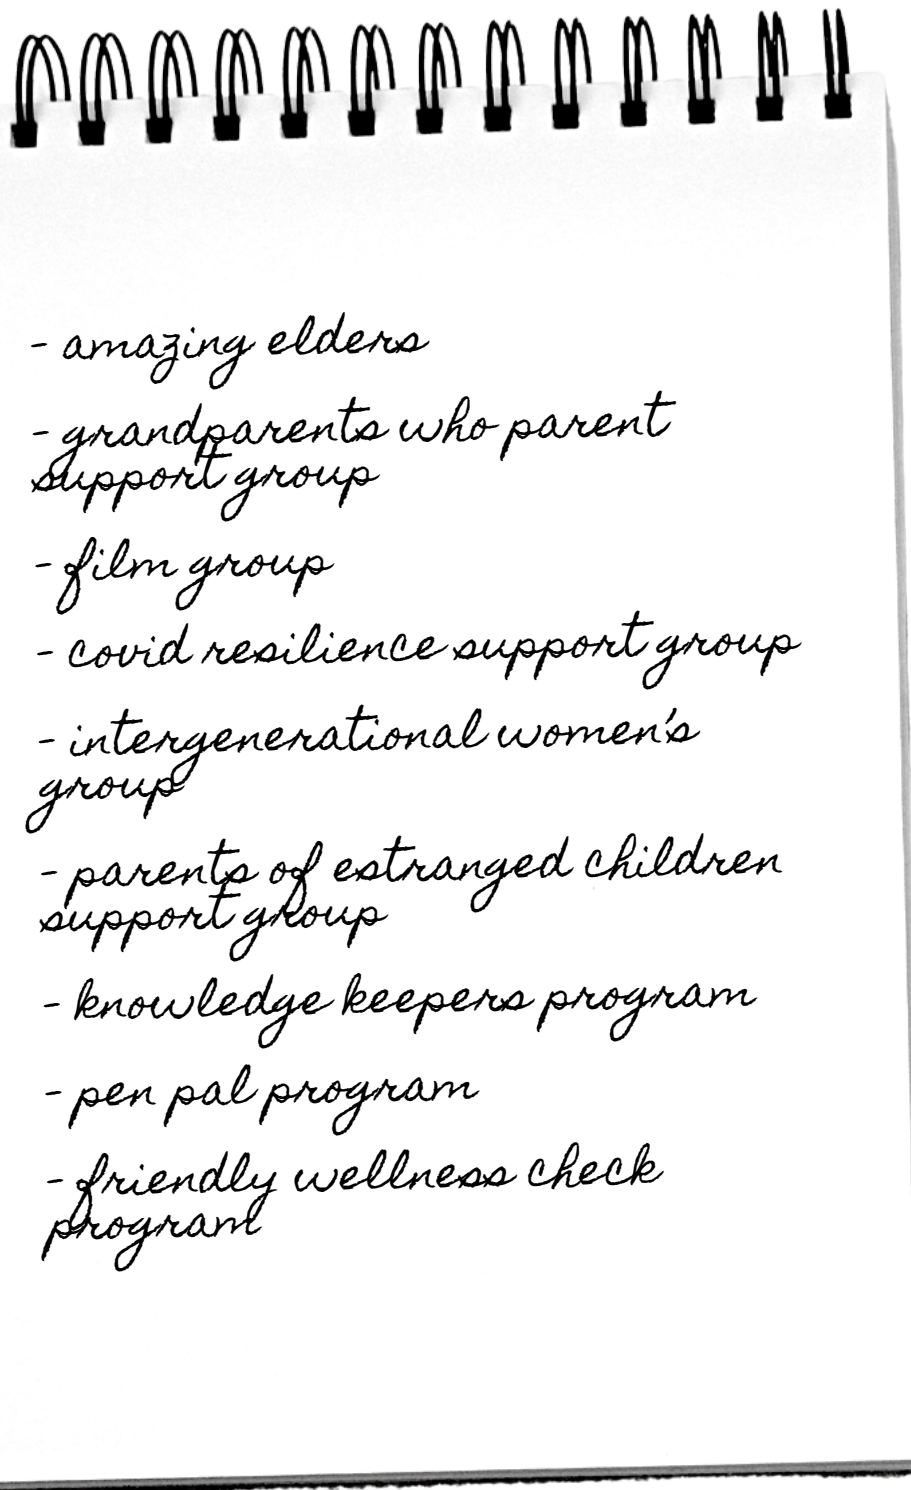 - amazing elders
- grandparents who parent
support group
- film group
- covid resilience support group
- intergenerational women's
group
- parents of estranged children
support group
- knowledge keepers program
- pen pal program
- friendly wellness check
program